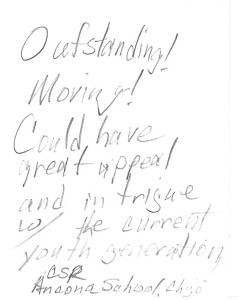 Outstanding!
Moving!
Could have
great appeal
and intrigue
w/ the current
youth generation
CSR
Ancona School, Chgo